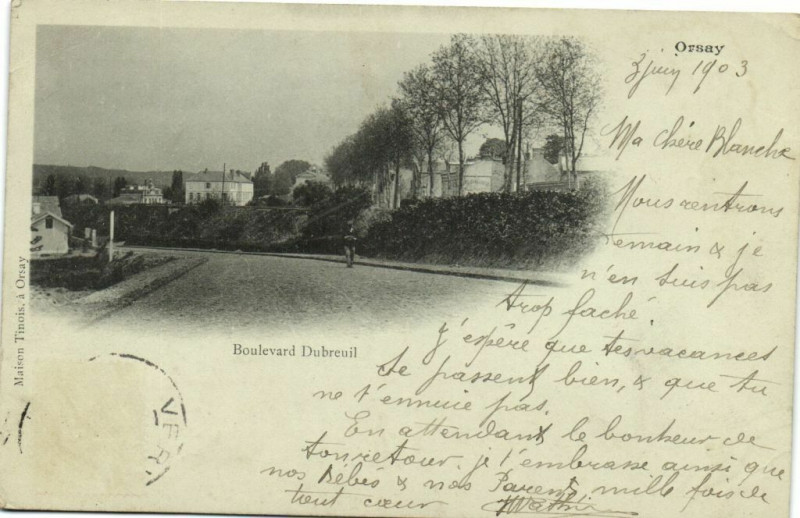 Orsay
3 juin 1903
Ma chère Blanche
Nous rentrons
demain & je
n'en suis pas
trop faché.
J'espère que tes vacances
se passent bien, & que tu
ne t'ennuie pas.
En attendant le bonheur de
ton retour, je t'embrasse ainsi que
nos Bébés & nos Parents mille fois de
tout cœur
Boulevard Dubreuil
Maison Tinois, à Orsay
VER